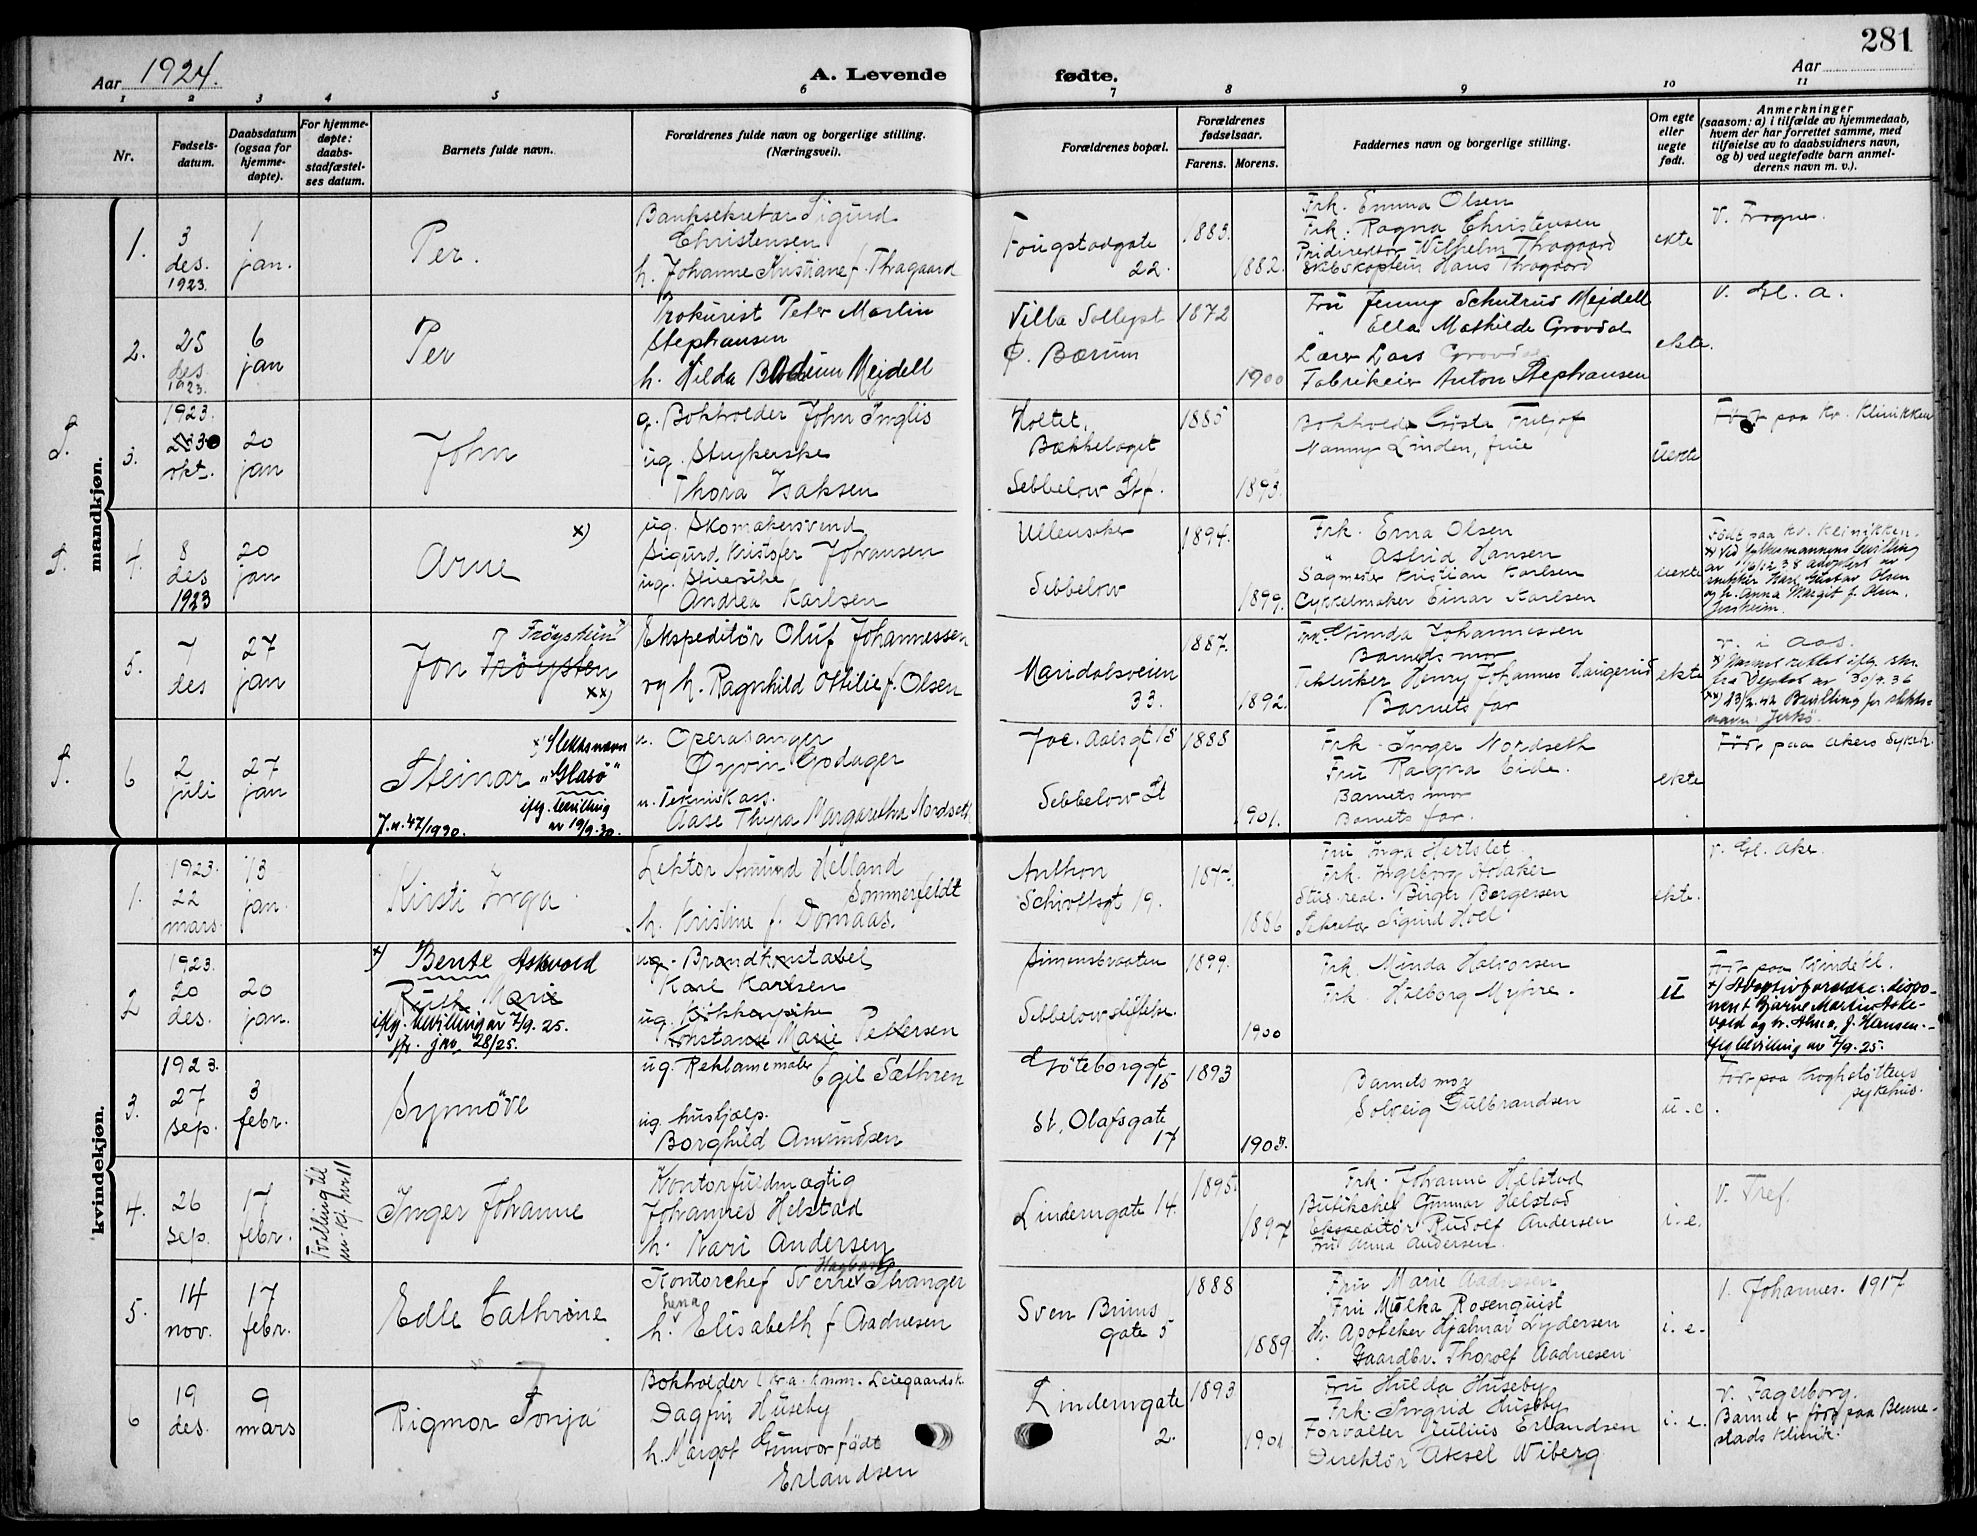 281
Aar 1924.
A. Levende fødte.
Aar
1 2 3 4 5 6 7 8 9 10 11
Nr.
Fødsels-
datum.
Daabsdatum
(ogsaa for
hjemme-
døpte).
For hjemme-
døpte:
daabs-
stadfæstel-
ses datum.
Barnets fulde navn.
Forældrenes fulde navn og borgerlige stilling.
(Næringsvei).
Forældrenes bopæl.
Forældrenes
fødselsaar.
Farens. Morens.
Faddernes navn og borgerlige stilling.
Om egte
eller
uegte
født.
Anmerkninger
(saasom: a) i tilfælde av hjemmedaab,
hvem der har forrettet samme, med
tilføielse av to daabsvidners navn,
og b) ved uegtefødte barn anmel-
derens navn m. v.).
mandkjøn.
1.
3
des.
1923.
1
jan.
Per.
Banksekretær Sigurd
Christensen
h. Johanne Kristiane f. Thagaard
Fougstadgate
22.
1883.
1882.
Frk. Emma Olsen
Frk. Ragna Christensen
Wilhelm Thagaard
Hans Thagaard
ekte
v. Frogner.
2.
25
des
1923.
6
jan
Per
Prokurist Peter Martin
Stephansen
h. Hilda Mejdell
Villa Sollyst
Ø. Bærum
1872
1900
Fru Jenny Schutrus Mejdell
Ella Mathilde Grovdal
Lærer Lars Grovdal
Fabrikeier Anton Stephansen
ekte.
v. Gl. A.
3.
1923.
okt.
20
jan
John
g. Bokholder John Inglis
ug. Strykerske
Thora Isaksen
Holtet,
Bækkelaget
Sebbelow Stf.
1885
1893.
Bokholder Gösta Fritjof
Nanny Linden, frue
uekte
Født paa Kv. Klinikken
4.
8
des
1923
20
jan
Arne x)
ug. Skomakersvend
Sigurd Kristofer Johansen
ug.
Andrea Karlsen
Ullensaker
Sebbelow
1894.
1899.
Frk. Erna Olsen
" Astrid Hansen
Sagmester Kristian Karlsen
Cykkelmaker Einar Karlsen
uekte
Født paa Kv. Klinikken.
x) Ved fylkesmannens bevilling
av 16/12 38 adoptert av
snekker Karl Gustav Olsen
og h. Anna Margit f. Olsen,
Jessheim.
5.
7
des
27
jan
Jon Tröysten
"Tröystein" xx)
Ekspeditör Oluf Johannessen
og h. Ragnhild Ottilie f. Olsen
Maridalsveien
33.
1887.
1892.
Frk. Gunda Johannessen
Barnets mor
Tekniker Henry Johannes Haugerud
Barnets far
ekte
v. i Aas.
x) Navnet rettet iflg. skr.
av 30/4. 36
Bevilling for slekts-
navn: Jerkö.
6
2
juli
27
jan
Steinar
x) Slektsnavn
"Glasö"
iflg. bevilling
av 19/9.30.
J.n. 47/1930.
u. Operasanger
Øyvin Godager
u. Teknisk ass.
Aase Thyra Margaretha Nordseth
Joc. Aalsgt 15
Sebbelow St
1888
1901.
Frk. Inger Nordseth
Fru Ragna Eide.
Barnets mor
Barnets far.
ekte
Født paa Akers Sykeh.
kvindekjøn.
1.
1923.
22
mars.
13
jan.
Kirsti Inga
Lektor Amund Helland
Sommerfeldt
h. Kristine f. Domaas.
Anthon
Schiøttsgt 19.
1886
Fru Inga Hertslet
Frk. Ingeborg Aslaker
Stud. real. Birger Bergersen
Sekretær Sigurd Hoel
ekte.
v. Gl. Aker
2
1923.
20
des.
20
jan.
x) Bente Askvold
Ruth Marie
iflg. bevilling av 7/9. 25.
jfr. jno. 28/25.
ug. Brandkonstabel
Karl Karlsen
ug. Kokkepike
Konstanse Marie Pettersen
Simensbraaten
Sebbelowstiftelse
1899.
1900
Frk. Minda Halvorsen
Frk. Halborg Myhre.
u
Født paa Kvindekl.
x) Adoptivforeldre: dispo-
nent Bjarne Martin Ask-
vold og h. Alma f. Hansen.
iflg. bevilling av 7/9. 25.
3.
1923.
27
sep.
3
febr.
Synnöve
ug. Reklamemaler
Egil Sæthren
ug. hushjælp.
Borghild Amundsen
Göteborggt
15
St. Olafsgate
17
1893
1903.
Barnets mor
Solveig Gulbrandsen
u.e.
Født paa Kroghstøttens
sykehus.
4.
26
sep.
17
febr.
Tvilling til
Inger Johanne
Kontorfuldmægtig
Johannes Helstad
h. Kari Andersen
Linderngate 14.
1895.
1897
Frk. Johanne Helstad
Butikchef Gunnar Helstad
Ekspeditör Rudolf Andersen
Fru Anna Andersen.
i.e.
V. Tref.
5.
14
nov.
17
febr.
Edle Cathrine
Kontorchef Sverre Stranger
h. Elisabeth f Aadnesen
Sven Bruns
gate 5
1888
1889.
Fru Marie Aadnesen
Fru Milka Rosenquist
Hr. Apoteker Hjalmar Lydersen
Gaardbr. Thorolf Aadnesen
i.e.
v. Johannes. 1917
6
19
des.
9
mars
Rigmor Tonja
Bokholder i Kr.a. komm. Leiegaardsk.
Dagfin Huseby
h. Margot Gunvor født
Erlandsen
Linderngate
2.
1893
1901
Fru Hulda Huseby
Frk. Ingrid Huseby
Forvalter Julius Erlandsen
Direktör Aksel Wiberg
i.e.
v. Fagerborg.
Barnet er født paa Benne-
stads klinik.